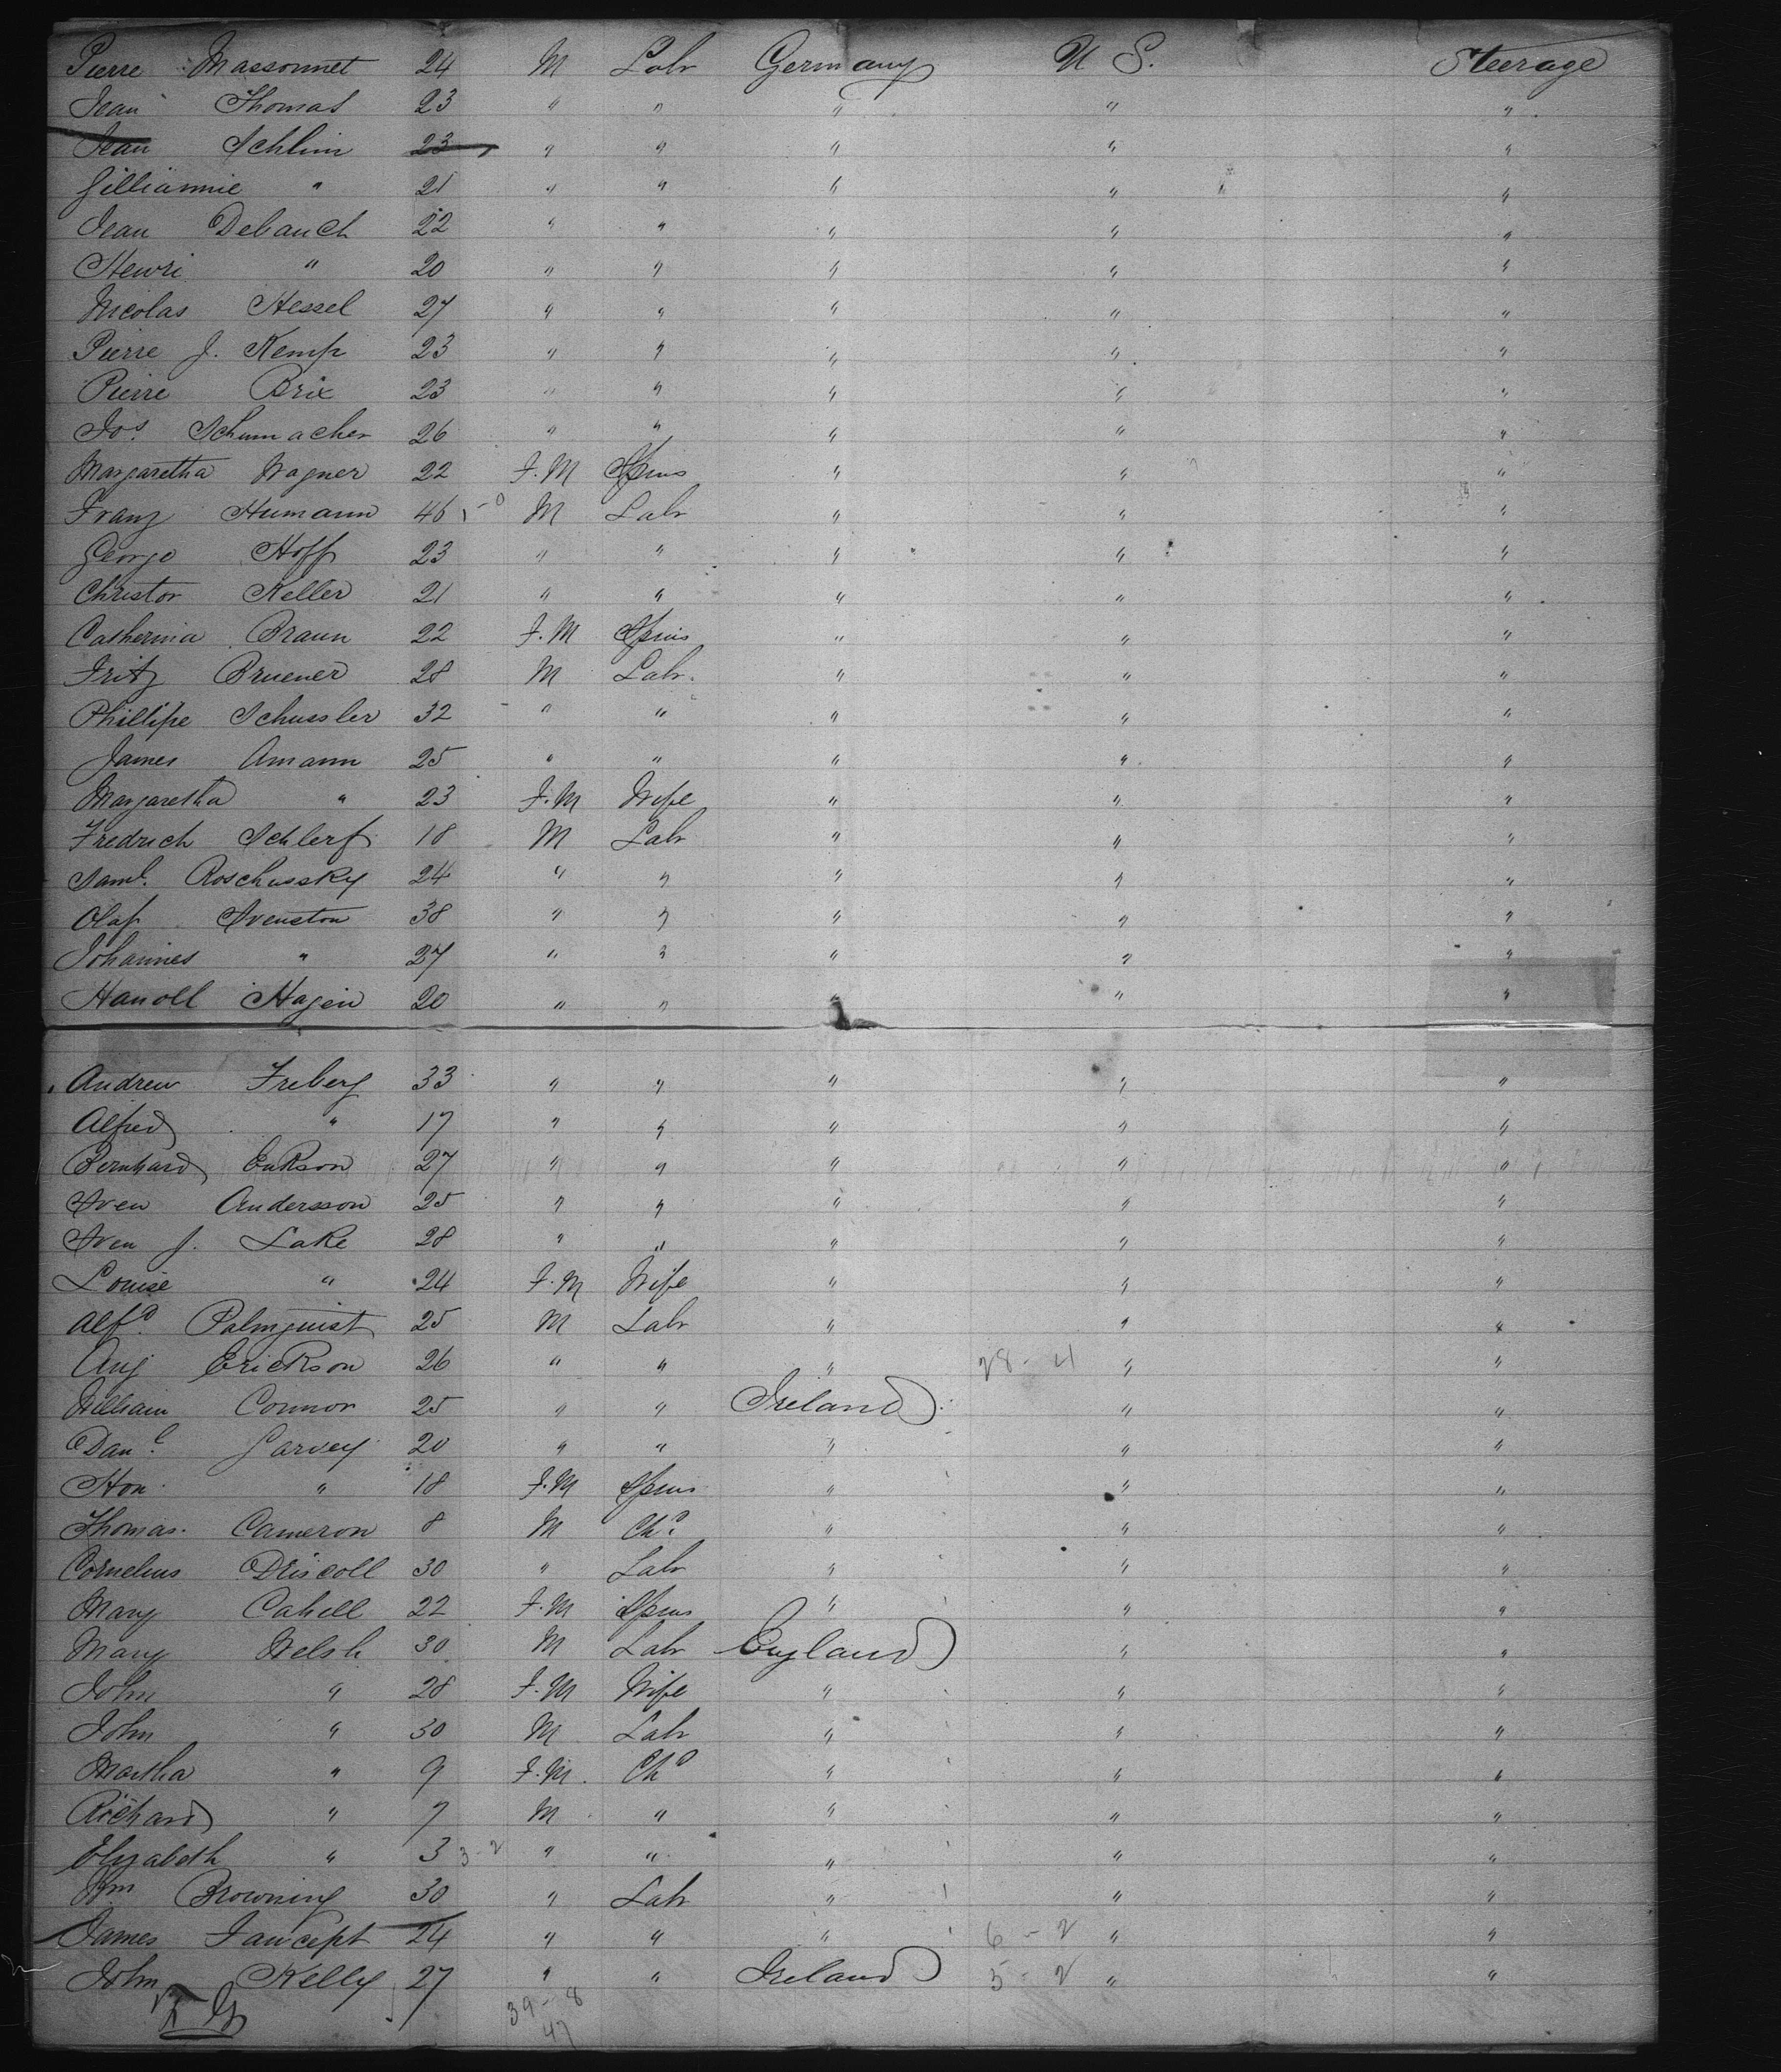 Pierre Massonnet 24 M Labr Germany U S. Steerage
Jean Thomas 23 " " " " "
Jean Schlim 23 " " " " "
Gilliamnie " 21 " " " " "
Jean Debauch 22 " " " " "
Henri " 20 " " " " "
Nicolas Hessel 27 " " " " "
Pierre J. Kemp 23 " " " " "
Pierre Brix 23 " " " " "
Jos. Schumacher 26 " " " " "
Margaretha Wagner 22 F.M Spins " " "
Franz Humann 46 1-0 M Labr " " "
George Hoff 23 " " " " "
Christor Keller 21 " " " " "
Catherina Braun 22 F.M Spins " " "
Fritz Bruener 28 M Labr. " " "
Phillipe Schussler 32 " " " " "
James Amann 25 " " " " "
Margaretha " 23 F.M Wife " " "
Fredrich Schlerf 18 M Labr " " "
Saml. Roschussky 24 " " " " "
Olaf Svenston 38 " " " " "
Johannes " 27 " " " " "
Hanoll Hagen 20 " " " " "
Andrew Freberg 33 " " " " "
Alfred " 17 " " " " "
Bernhard Erikson 27 " " " " "
Sven Andersson 25 " " " " "
Sven J. Lake 28 " " " " "
Louise " 24 F.M Wife " " "
Alfd. Palmquist 25 M Labr " " "
Aug Erickson 26 " " " 28-4 " "
William Connor 25 " " Ireland " "
Danl. Garvey 20 " " " " "
Hon " 18 F.M Spins " " "
Thomas. Cameron 8 M Chd. " " "
Cornelius Driscoll 30 " Labr " " "
Mary Cahill 22 F.M Spins " " "
Mary Welsh 30 M Labr England " "
John " 28 F.M Wife " " "
John " 30 M Labr " " "
Martha " 9 F.M. Chd " " "
Richard " 7 M " " " "
Elizabeth " 3 3-2 " " " " "
Wm Browning 30 " Labr " " "
James Fawcept 24 " " " 6-2 " "
John Kelly 27 " " Ireland 5-2 " "
39-8
47